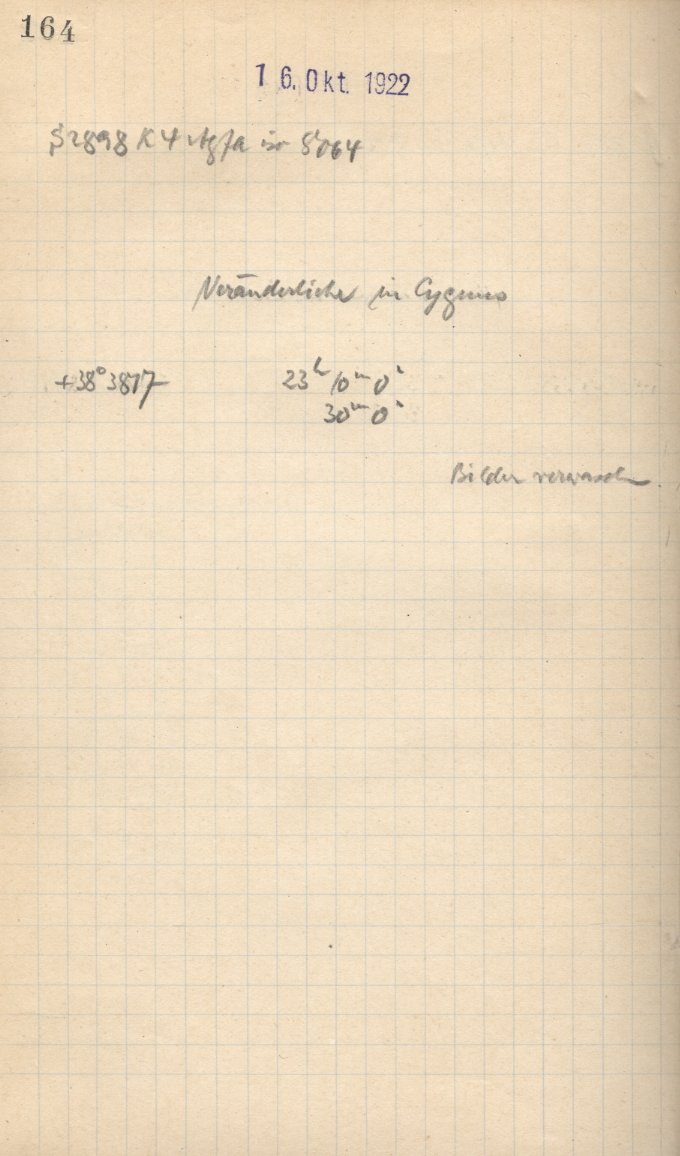 164
16. Okt. 1922
S2898 K4 Agfa iso 5064
Veränderliche in Cygnus
+38° 3817 23h 10m 0s
30m 0s
Bilder verwaschen.